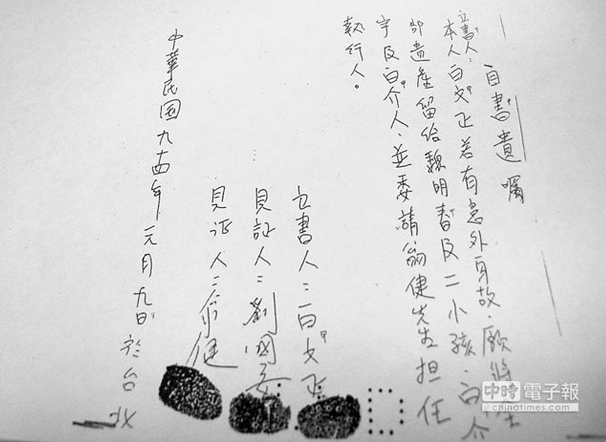 自書遺囑
立書人：
本人白文正若有意外身故，願將全
部遺產留給魏明春及二小孩，白介
宇及白介人，並委請翁健先生擔任
執行人。
立書人：白文正
見証人：劉
見証人：翁健
中華民国九十四年元月九日於台北
中時電子報
chinatimes.com